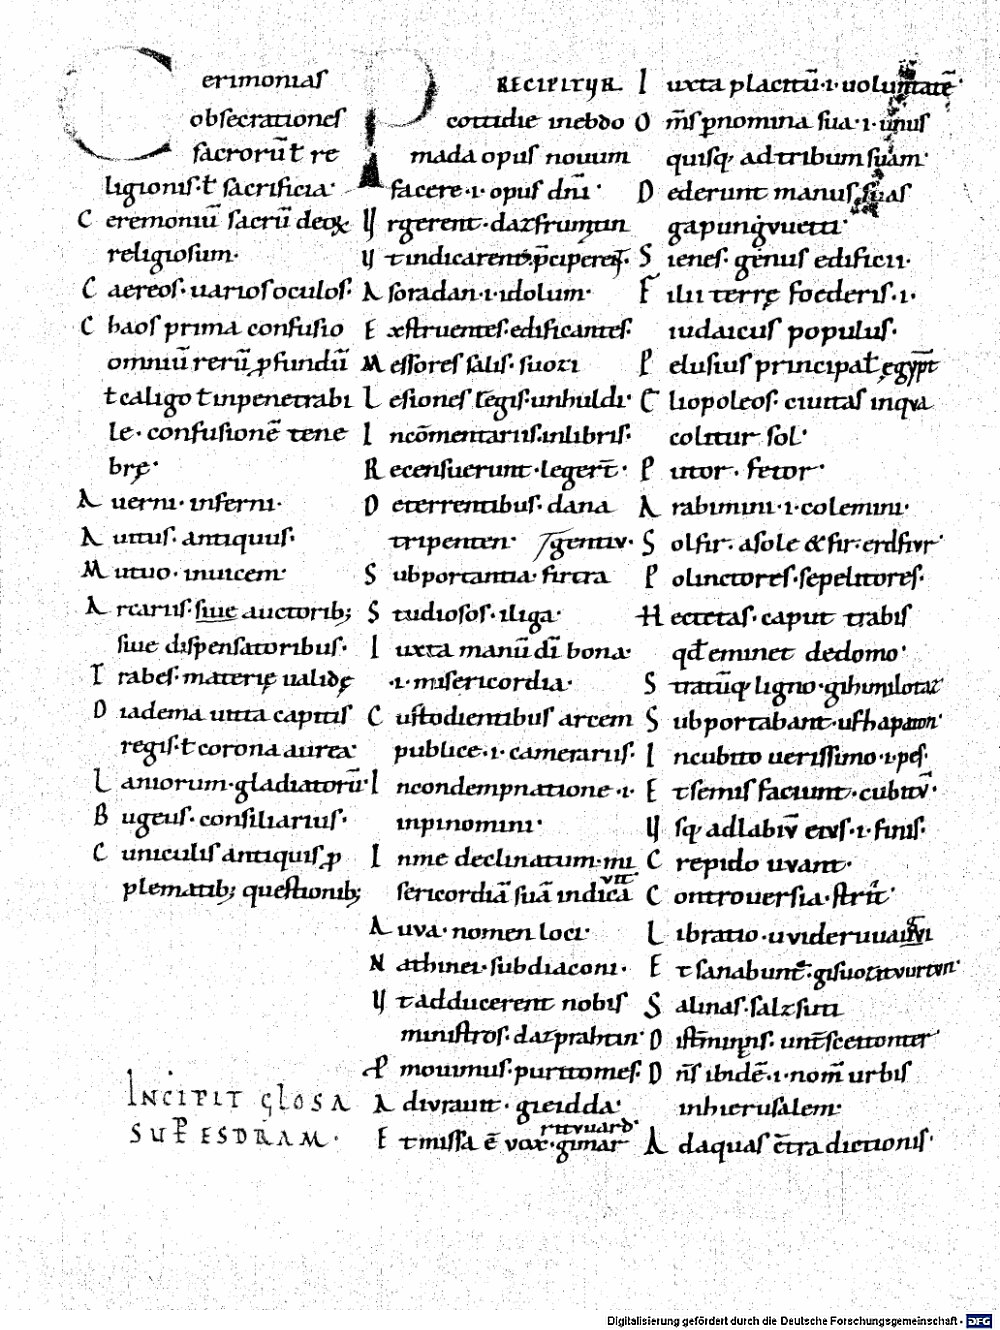 Cerimonias
obsecrationes
sacrorū ł re
ligionis· ł sacrificia·
Ceremoniū sacrū deo ł
religiosum·
Caereos· uarios oculos·
Chaos prima confusio
omniū rerū ꝓfundū
ł caligo ł inpenetrabi
le· confusionē tene
brę·
Auerni· inferni·
Auitus· antiquus·
Mutuo· inuicem·
Arcariis· siue auctorib;
siue dispensatoribus·
Trabes· materię ualidę
Diadema uitta capitis
regis· ł corona aurea·
Laniorum· gladiatorū·
Bugeus· consiliarius·
Cuniculis antiquis ꝓ
plematib; questionib;
INCIPIT GLOSA
SUP ESDRAM·
PRECIPITUR
cottidie inebdo
mada opus nouum
facere· ·i· opus dñi·
Urgerent· dazfrumtin
Utindicarent· p̄cipereſ·
Asoradan· ·i· idolum·
Exstruentes· edificantes·
Messores salis· suozi
Lesiones regis· unhuldi·
Incōmentariis· inlibris·
Recensuerunt· legert̄·
Deterrentibus· dana
tripenten· gentiv·
Subportantia· firtra
Studiosos· iliga·
Iuxta manū dī bona·
·i· misericordia·
Custodientibus arcem
publice· ·i· camerariis·
Incondempnatione· ·i·
inpinomini·
Inme declinatum· mi
sericordiā suā indicā vit
Auva· nomen loci·
Nathinei· subdiaconi·
Utadducerent nobis
ministros· dazprahtin·
Pmouimus· purttomes·
Adivraunt· gieidda·
Etmissa ē vox· gimar
rituuard·
Iuxta placitū ·i· uoluntatē·
Om̄s ꝑnomina sua ·i· unus
quisq; ad tribum suam·
Dederunt manus suas
gapungvuetti·
Sienes· genus edificii·
Filii terrę foederis· ·i·
iudaicus populus·
Pelusius principat̄ ęgypt̄
Cliopoleos· ciuitas inqua
colitur sol·
Putor· fetor·
Arabimini· ·i· colemini·
Solfir· asole & fir· erdfivr·
Polinctores· sepelitores·
Hectetas· caput trabis
qđ eminet dedomo·
Stratūq; ligno· gihimilotaz
Subportabant· ufhapaton·
Incubito uerissimo· ·i· pes·
Etsemis faciunt· cubitū·
Usq; adlabiū eius· ·i· finis·
Crepido uvant·
Controuersia· strit·
Libratio· uvideruuaivi
Etsanabunt̄· gisuozitvurtvn·
Salinas· salzsuti
Dist̄minīis· unt̄sceitonter
Dn̄s ibidē· ·i· nom̄ urbis
inhierusalem·
Adaquas c̄tradictionis·
Digitalisierung gefördert durch die Deutsche Forschungsgemeinschaft - DFG